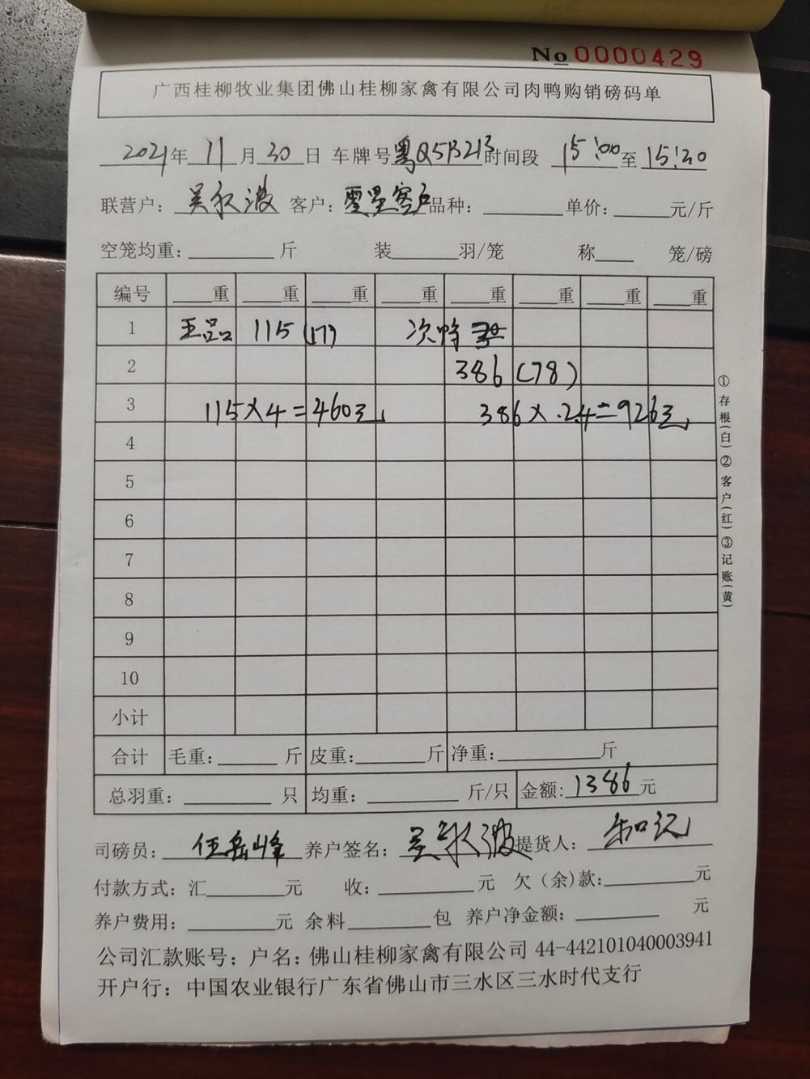 No 0000429
广西桂柳牧业集团佛山桂柳家禽有限公司肉鸭购销磅码单
2021年 11 月 30 日 车牌号 粤Q5B213 时间段 15:00 至 15:30
联营户: 吴永波 客户: 零星客户 品种: 单价: 元/斤
空笼均重: 斤 装 羽/笼 称 笼/磅
编号 重 重 重 重 重 重 重 重
1 115 (17) 次鸭
2 386 (78)
3 115×4=460元 386×2.4=926元
4
5
6
7
8
9
10
小计
合计 毛重: 斤 皮重: 斤 净重: 斤
总羽重: 只 均重: 斤/只 金额: 1386 元
司磅员: 任岳峰 养户签名: 吴永波 提货人:
付款方式: 汇 元 收: 元 欠(余)款: 元
养户费用: 元 余料 包 养户净金额: 元
公司汇款账号: 户名: 佛山桂柳家禽有限公司 44-442101040003941
开户行: 中国农业银行广东省佛山市三水区三水时代支行
①存根(白)②客户(红)③记账(黄)